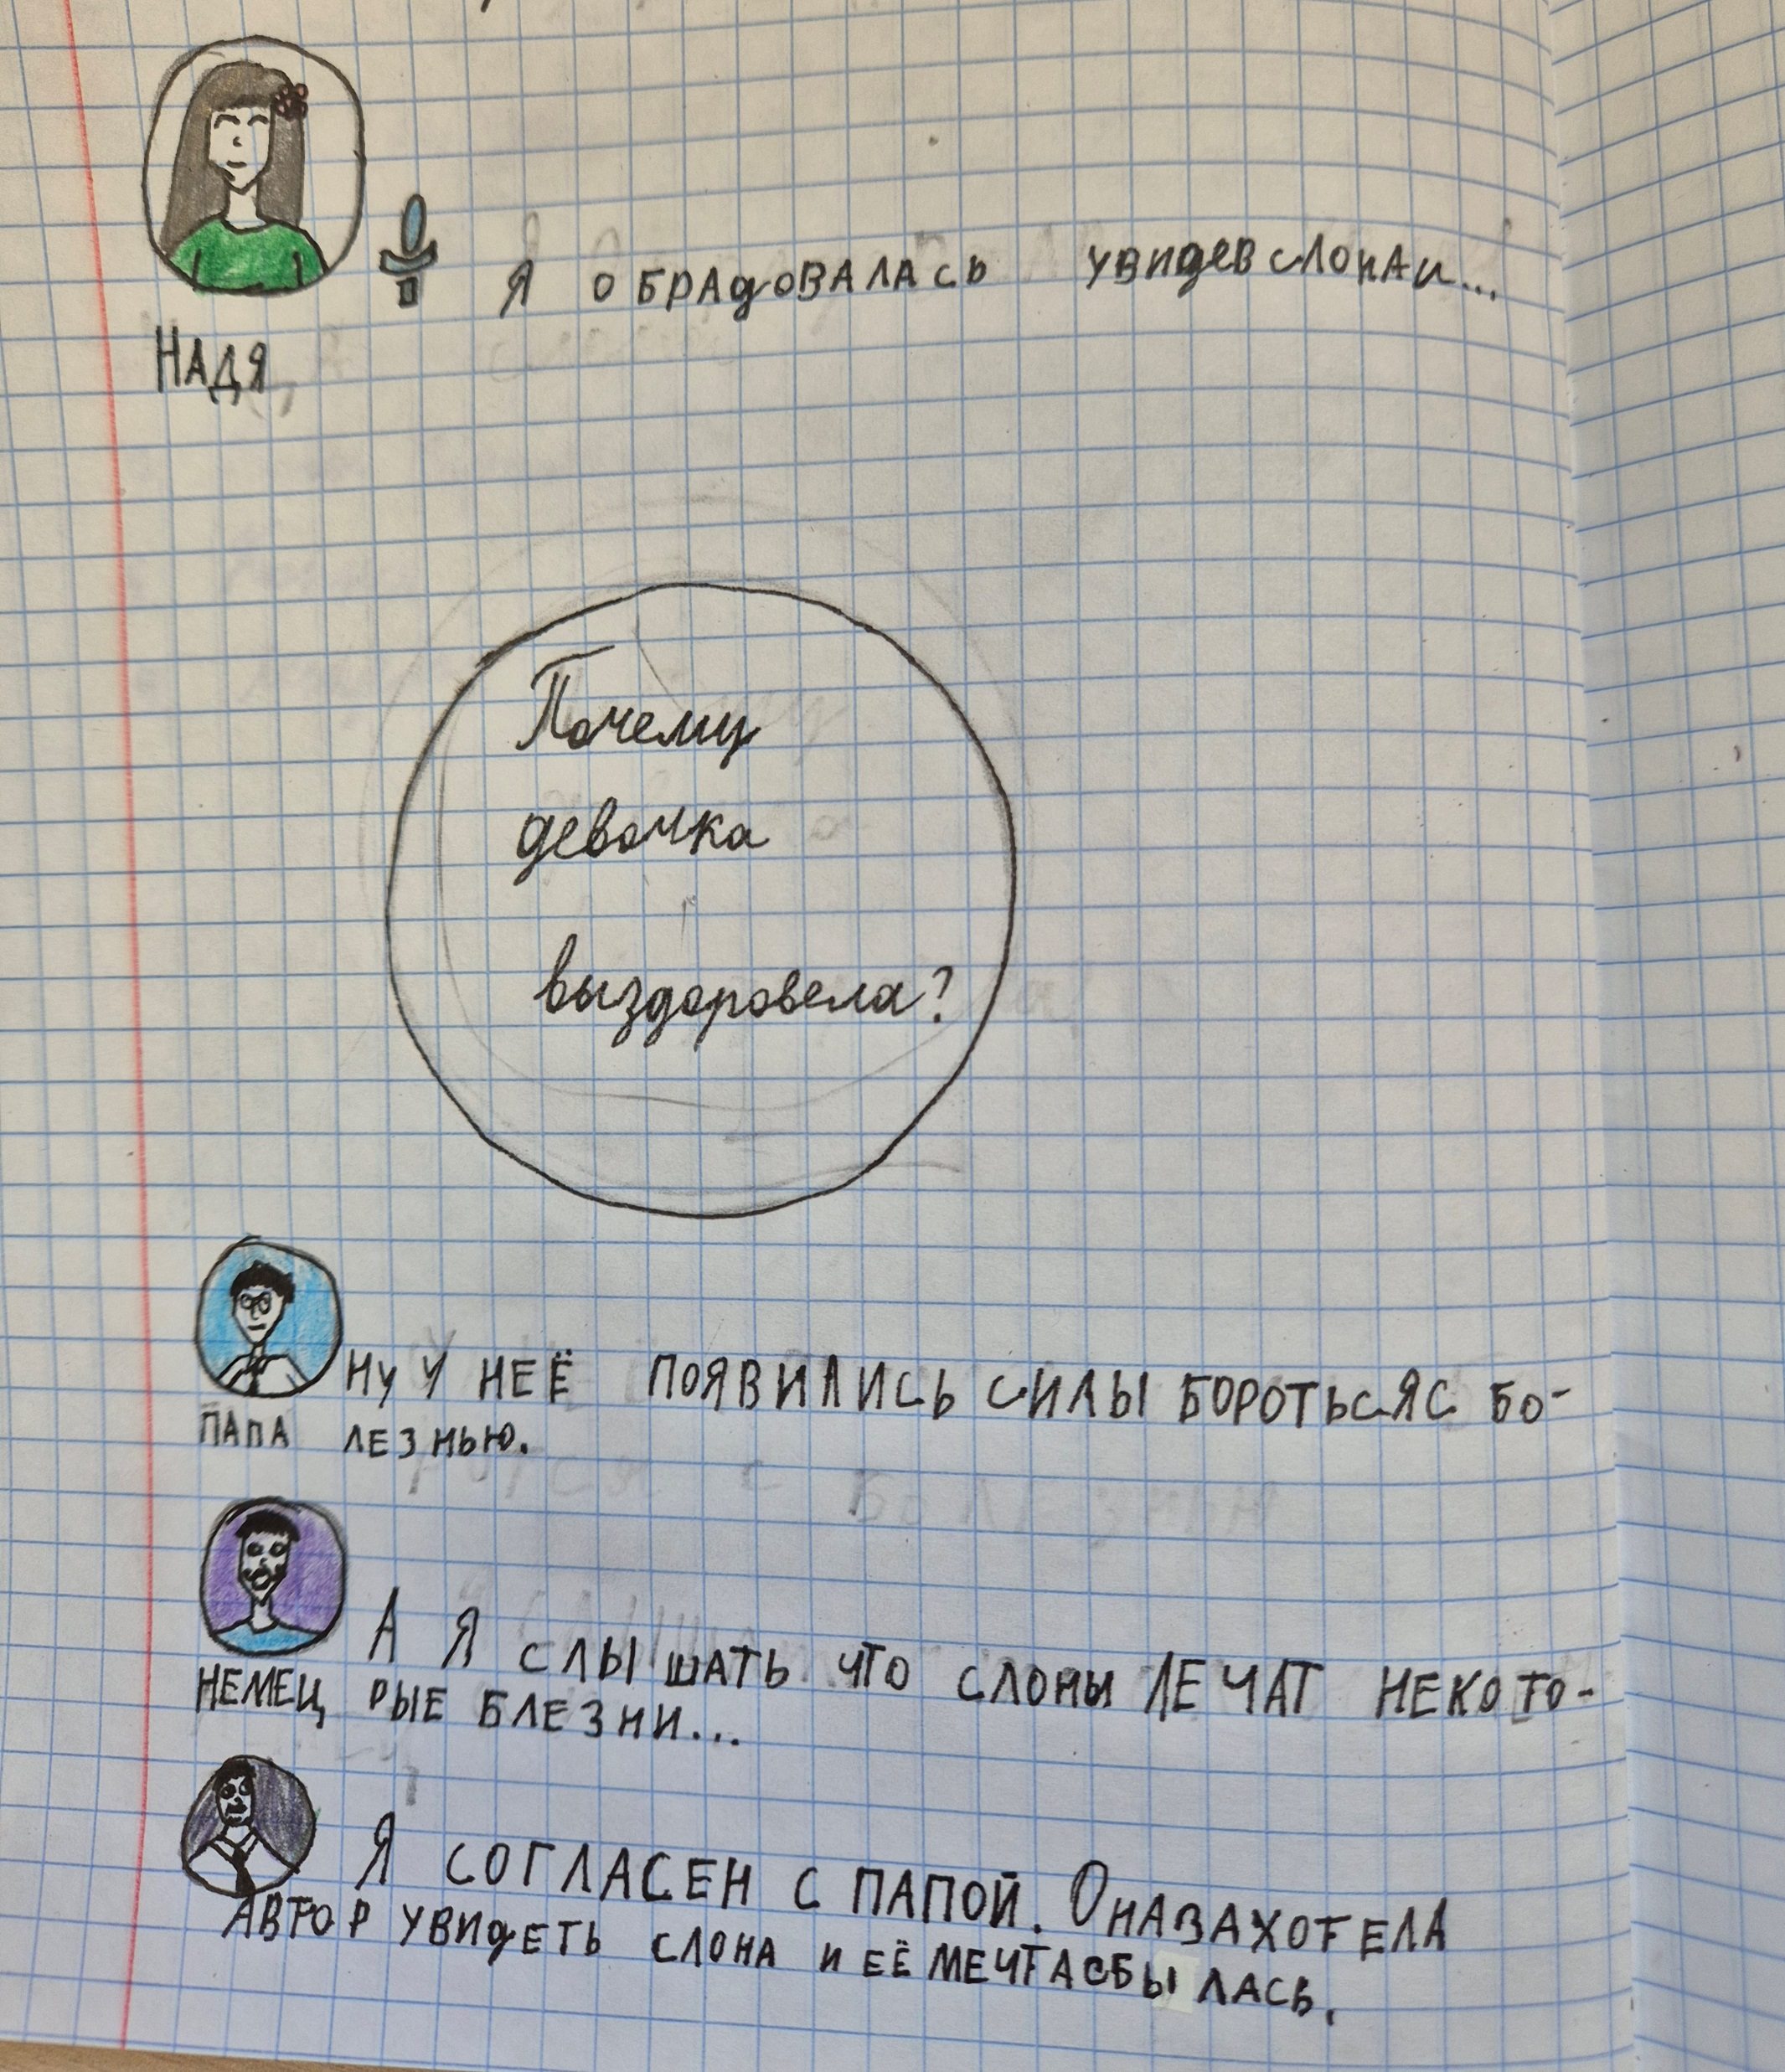 Я ОБРАДОВАЛАСЬ УВИДЕВ СЛОНА И...
НАДЯ
Почему
девочка
выздоровела?
НУ У НЕЁ ПОЯВИЛИСЬ СИЛЫ БОРОТЬСЯ С БО-
ПАПА ЛЕЗНЬЮ.
А Я СЛЫШАТЬ ЧТО СЛОНЫ ЛЕЧАТ НЕКОТО-
НЕМЕЦ РЫЕ БЛЕЗНИ...
Я СОГЛАСЕН С ПАПОЙ. ОНА ЗАХОТЕЛА
АВТОР УВИДЕТЬ СЛОНА И ЕЁ МЕЧТА СБЫЛАСЬ.